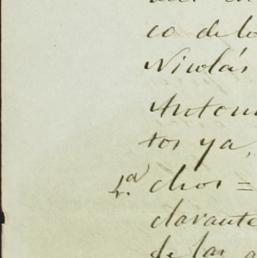 co de lo
Nicolás
Anton
tos ya,
chos =
clarante
de las a